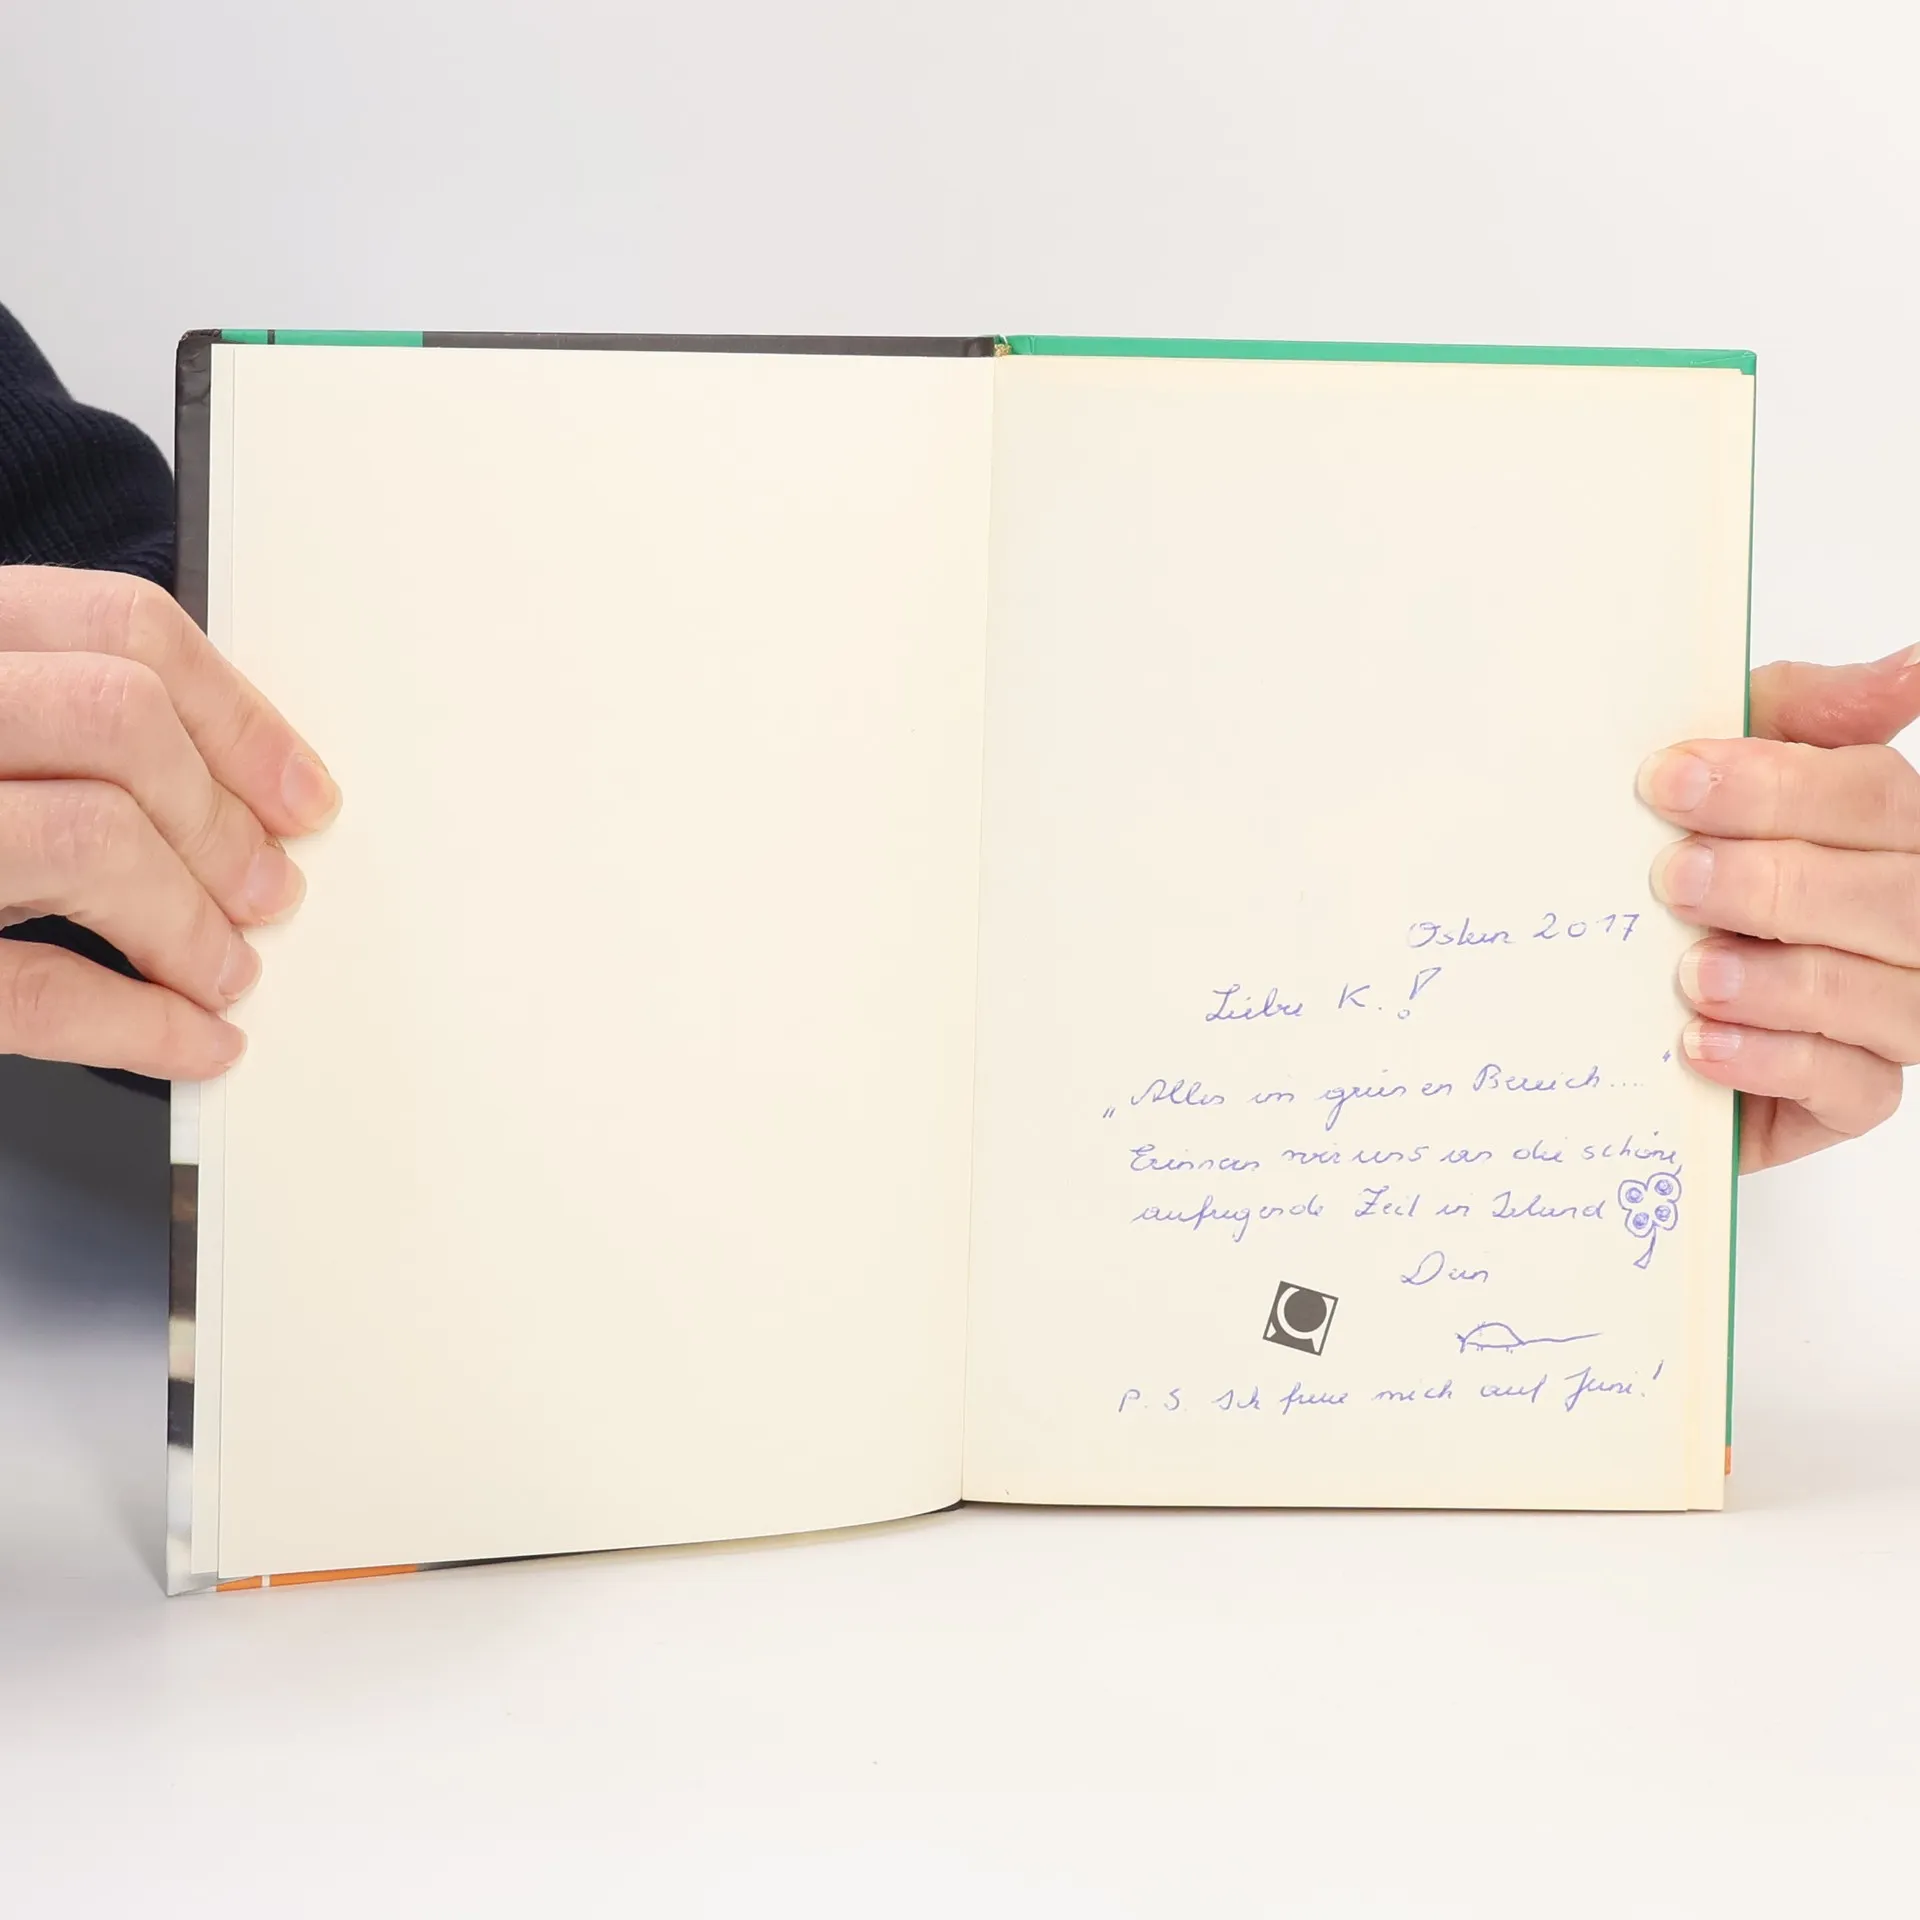 Ostern 2017
Liebe K.!
„Alles im grünen Bereich...."
Erinnern wir uns an die schöne,
aufregende Zeit in Irland
Dein
P. S. Ich freue mich auf Juni!